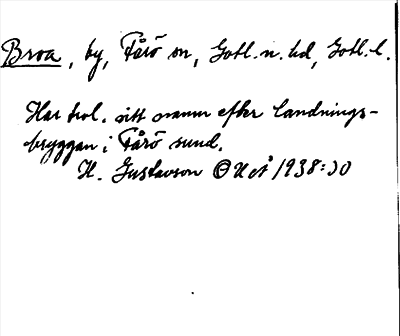 Broa, by, Fårö sn, Gotl. n. hd, Gotl. l.
Har trol. sitt namn efter landnings-
bryggan i Fårö sund.
H. Gustavson OUÅ 1938:30